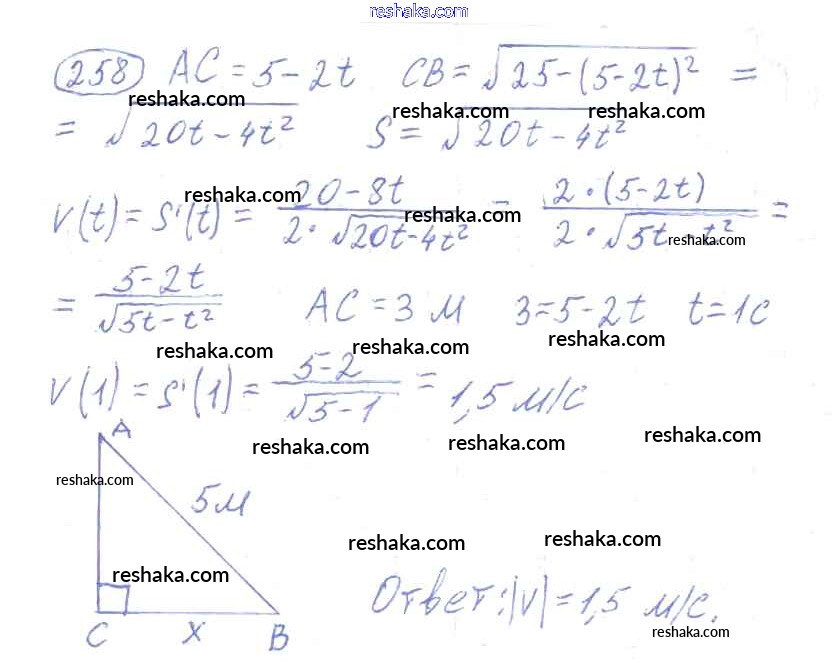 reshaka.com
258 AC = 5 - 2t CB = √25-(5-2t)² =
reshaka.com reshaka.com reshaka.com
= √20t - 4t² S = √20t - 4t²
reshaka.com
V(t) = S'(t) = 20-8t / 2·√20t-4t² = 2·(5-2t) / 2·√5t-t² =
reshaka.com reshaka.com
= 5-2t / √5t-t² AC = 3 м 3=5-2t t=1c
reshaka.com reshaka.com reshaka.com
V(1) = S'(1) = 5-2 / √5-1 = 1,5 м/с
A
reshaka.com reshaka.com
reshaka.com
5м
reshaka.com reshaka.com
reshaka.com
Ответ: |v| = 1,5 м/с.
reshaka.com
C x B